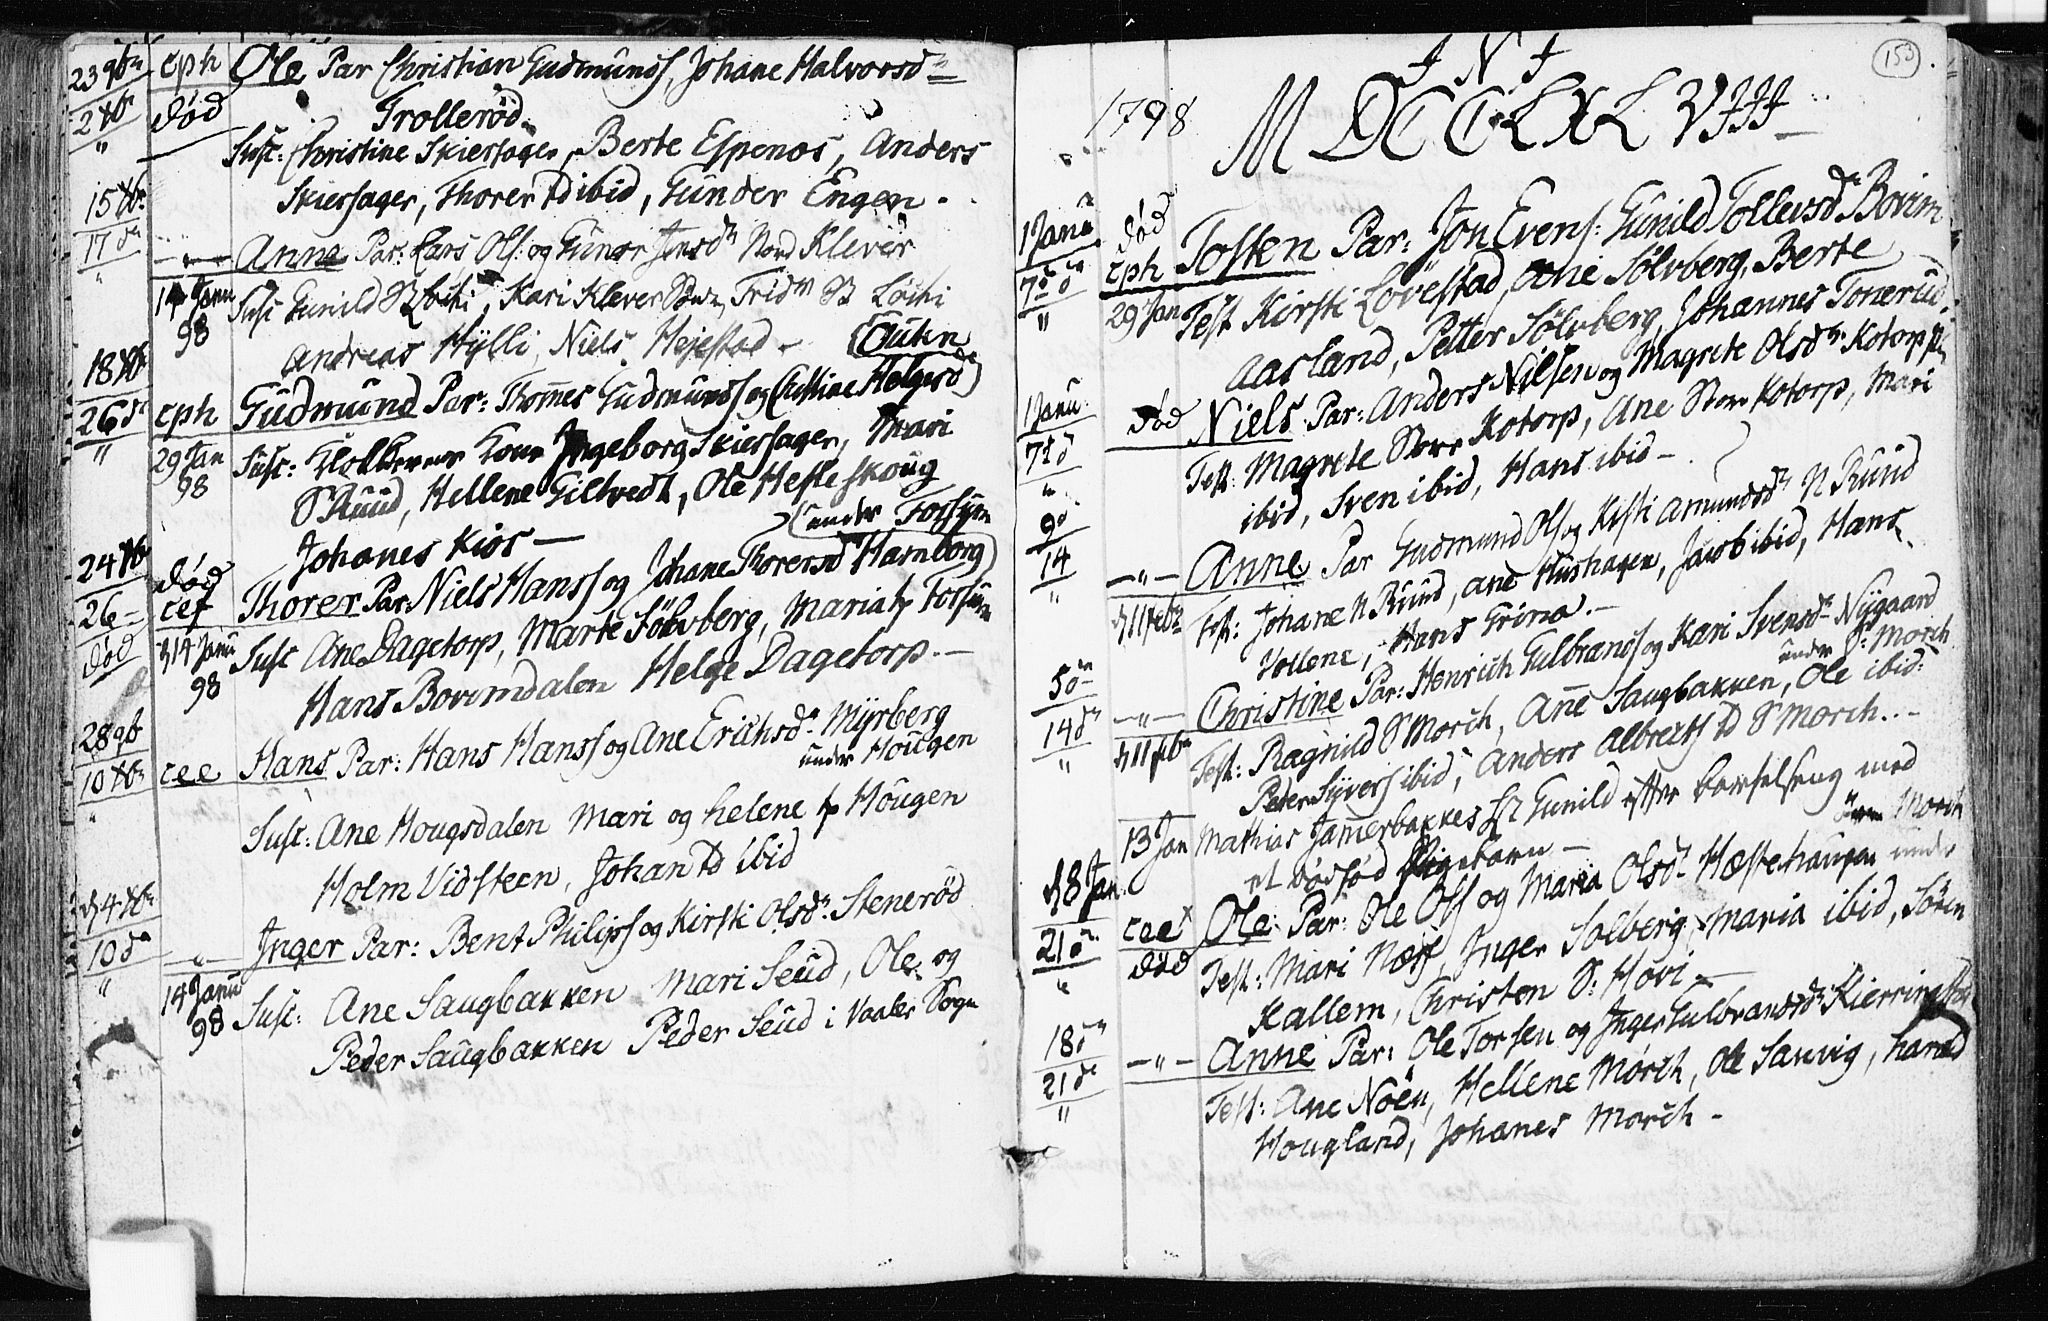 23 9br cph Ole Par Christian Gudmunds, Johane Halvorsd
2 Xbr død Trollerød
" Susc: Christine Skiersager, Berte Espenos, Anders
15 Xbr Skiersager, Thorer td ibid, Gunder Engen.
17 d — " — Anne Par: Lars Ols: og Gunor Jensd Nord Klever
" 14 Janu 98 Susc Gunild Kari Klever
Andreas Hylli, Niels Hejestad — Guten
18 Xbr
26 d cph Gudmund Par: Thomes Gudmunds og Christine Helgesd
" 29 Jan 98 Susc: Kone Ingeborg Skiersager, Mari
S Ruud, Hellene Giltvedt, Ole Hesteskoug
Johanes Kios — under Fossum
24 Xbr død
26 — cef Thorer Par Niels Hanss og Johane Thorersd Hamborg
død 14 Janu 98 Susc Ane Dagetorp, Marte Sölvberg, Maria Fossum
Hans Bovimdalen Helge Dagetorp. —
28 9br
10 Xbr cee Hans Par: Hans Hanss og Ane Erichsd Myrberg
under Hougen
" Susc: Ane Hougsdalen Mari og helene Hougen
Holm Vidsteen, Johan td ibid
4 Xbr
10 d — " — Inger Par: Bent Philips og Kirsti Olsd. Stenerød
" 14 Janu 98 Susc: Ane Saugbakken Mari Seud, Ole og
Peder Saugbakken Peder Seud i Vaaler Sogn
153
I N J
1798 MDCCLXLVIII
1 Janu død
7 d cph Tosten Par: Jon Evens: Gunild Tollevsd Bovim
" 29 Jan Test Kirsti Lövestad, Ane Sölvberg, Berte
Aasland, Petter Sölvberg, Johannes Tonerud
1 Janu død Niels Par: Anders Nilsen og Magrete Olsd Kotorp
7 d Test: Magrete Store Kotorp, Ane Store Kotorp, Mari
" ibid, Sven ibid, Hans ibid —
9 d
14 — " — Anne Par Gudmund Ols og Kirsti Amundsd N Ruud
" 11 Febr Test: Johane N Ruud, Ane Hushagen, Jacob ibid, Hans
Vollene, Hans Grima. —
5 d
14 d — " — Christine Par: Henrich Gulbrands og Kari Svensd Nygaard
under S: Morch
" 11 Febr Test: Ragnild S Morch, Ane Saugbakken, Ole ibid:
Peder Syvers ibid, Anders Albrects td S Morch. —
13 Jan Mathias Jamerbakkes Gunild efter barselseng med
et dødfød Pigebarn —
18 Jan Morch
21 d cee Ole Par: Ole Ols og Maria Olsd Hestehaugen under
" død Test: Mari Næss, Inger Solberg, Maria ibid, Sören
Kallem, Christen S: Hovi —
18 d
21 d — " — Anne Par: Ole Torsen og Inger Gulbrandsd
" Test: Ane Nöen, Hellene Mörch, Ole Sanvig, hans
Hougland, Johanes Morch —